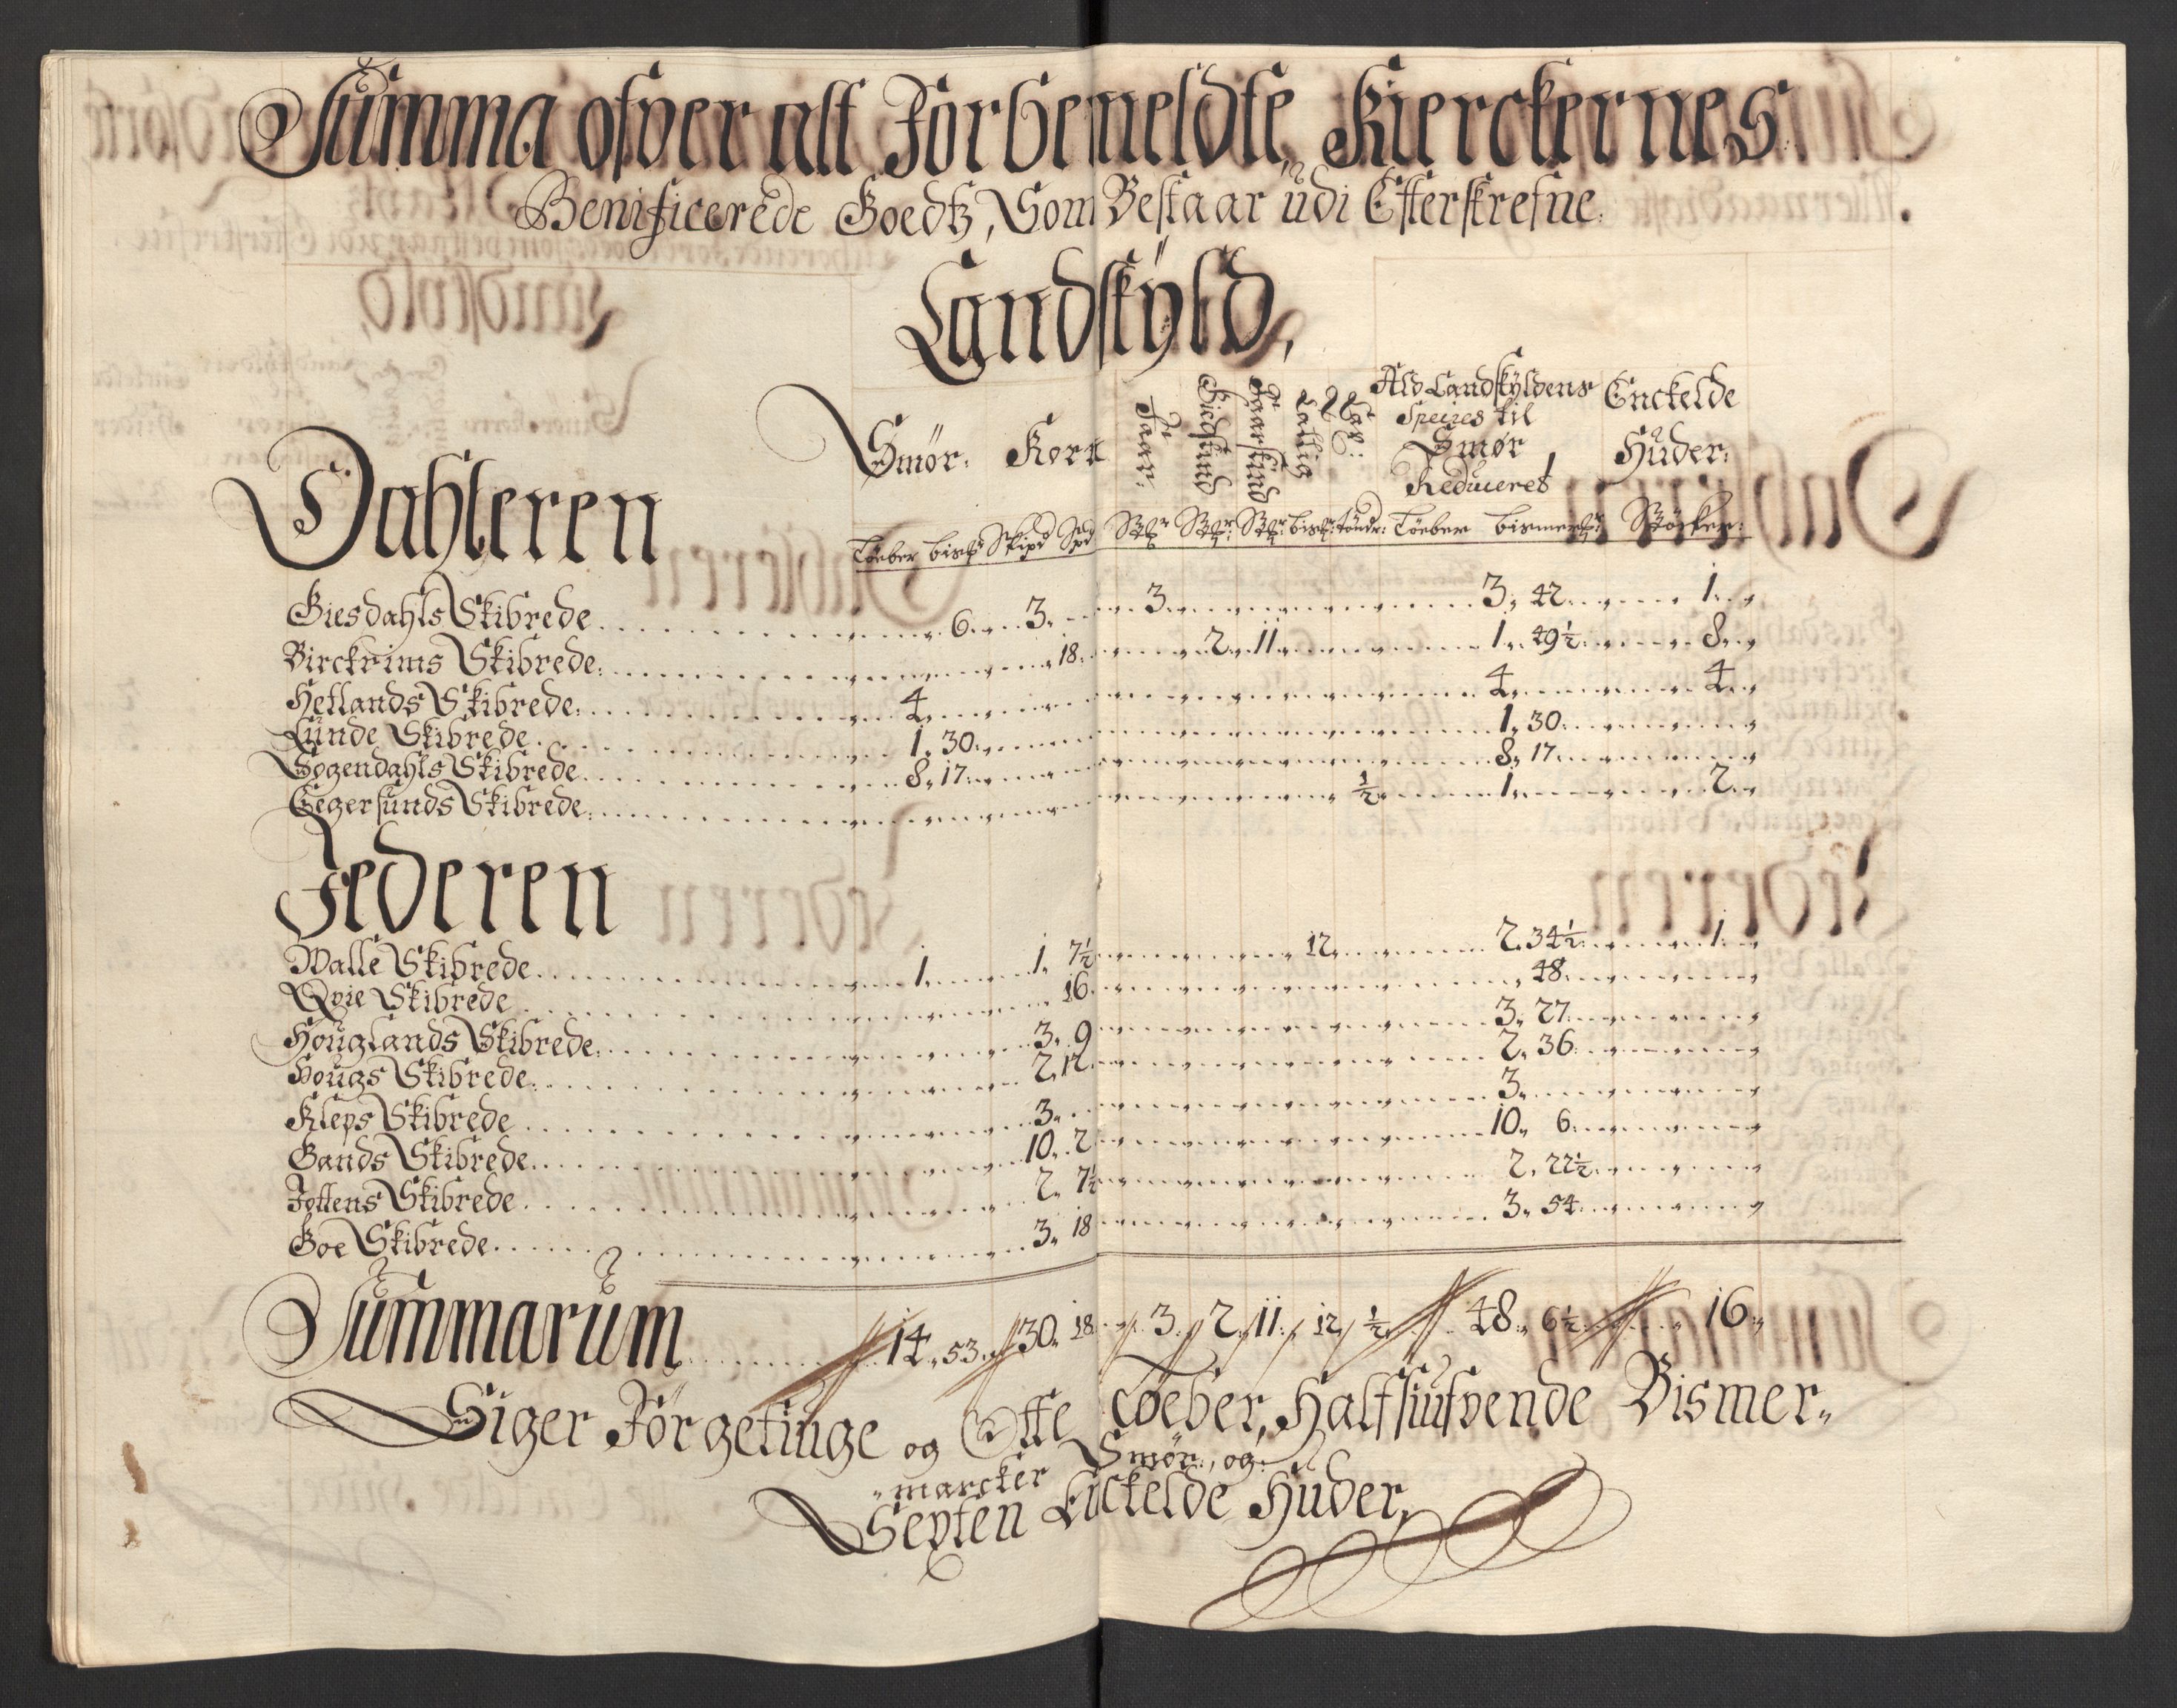 Summa ofver alt Forbemeldte Kierckernes
Benificerede Goedtz, Som Bestaar udi Efterskrefne:
Landskyld,
Smør: Korn Faar: Giedskind Faarskind Tallig Ald Landskyldens Speicies til Smør Reduceret, Enckelde Huder:
Dahleren
Tøeber bismr Skipd Spd Stkr Stkr: Stkr: bismr: tøndr: Tøeber bismerkr Støcker:
Giesdahls Skibrede 6 3 3 3 42 1
Birckrims Skibrede: 18 2 11 1 49½ 8
Hetlands Skibrede: 4 4 4
Lunde Skibrede 1 30 1 30
Sogendahls Skibrede 8 17 8 17
Egersunds Skibrede: ½ 1 2
Jederen
Walle Skibrede 1 1 7½ 12 2 34½ 1
Qvie Skibrede 16 48
Houglands Skibrede: 3 9 3 27
Hougs Skibrede: 2 12 2 36
Kleps Skibrede 3 3
Gands Skibrede 10 2 10 6
Jottens Skibrede 2 7½ 2 22½
Goe Skibrede 3 18 3 54
Summarum 14 53 30 18 3 2 11 12 ½ 48 6½ 16
Siger Førgetiuge og Otte tøeber, Halfsiufvende Bismer„
„marcker Smør:, og:
Seyten Enckelde Huder,